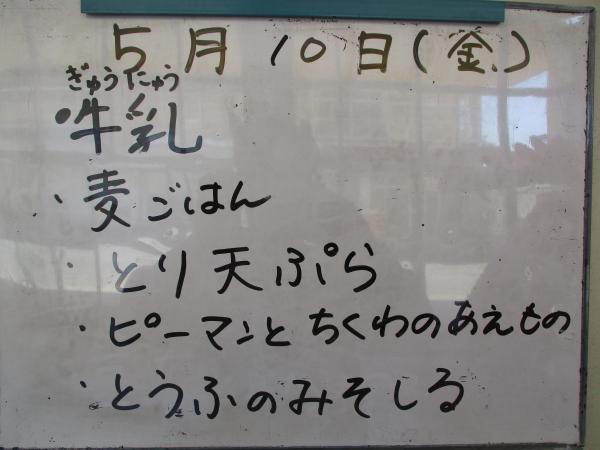 5月10日(金)
ぎゅうにゅう
・牛乳
・麦ごはん
・とり天ぷら
・ピーマンとちくわのあえもの
・とうふのみそしる